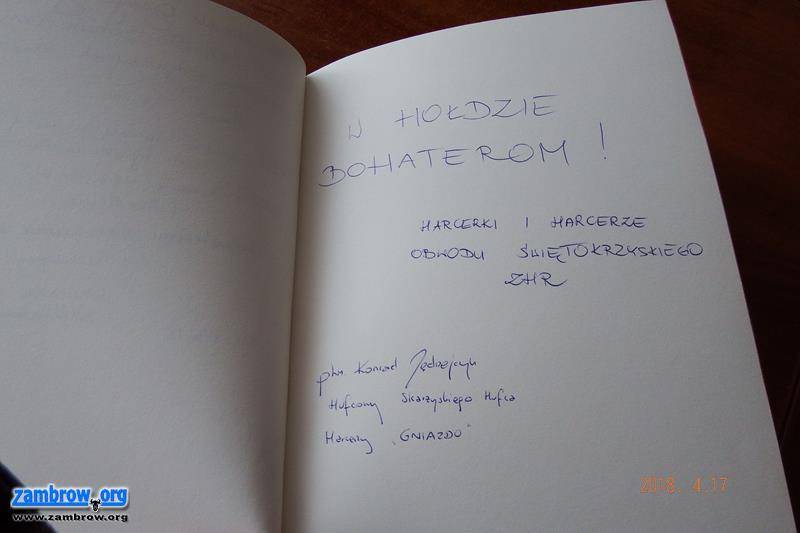 W HOŁDZIE
BOHATEROM !
HARCERKI I HARCERZE
OBWODU ŚWIĘTOKRZYSKIEGO
ZHR
phm. Konrad Jędrzejczyk
Hufcowy Skarżyskiego Hufca
Harcerzy "GNIAZDO"
2018. 4.17
zambrow.org
www.zambrow.org